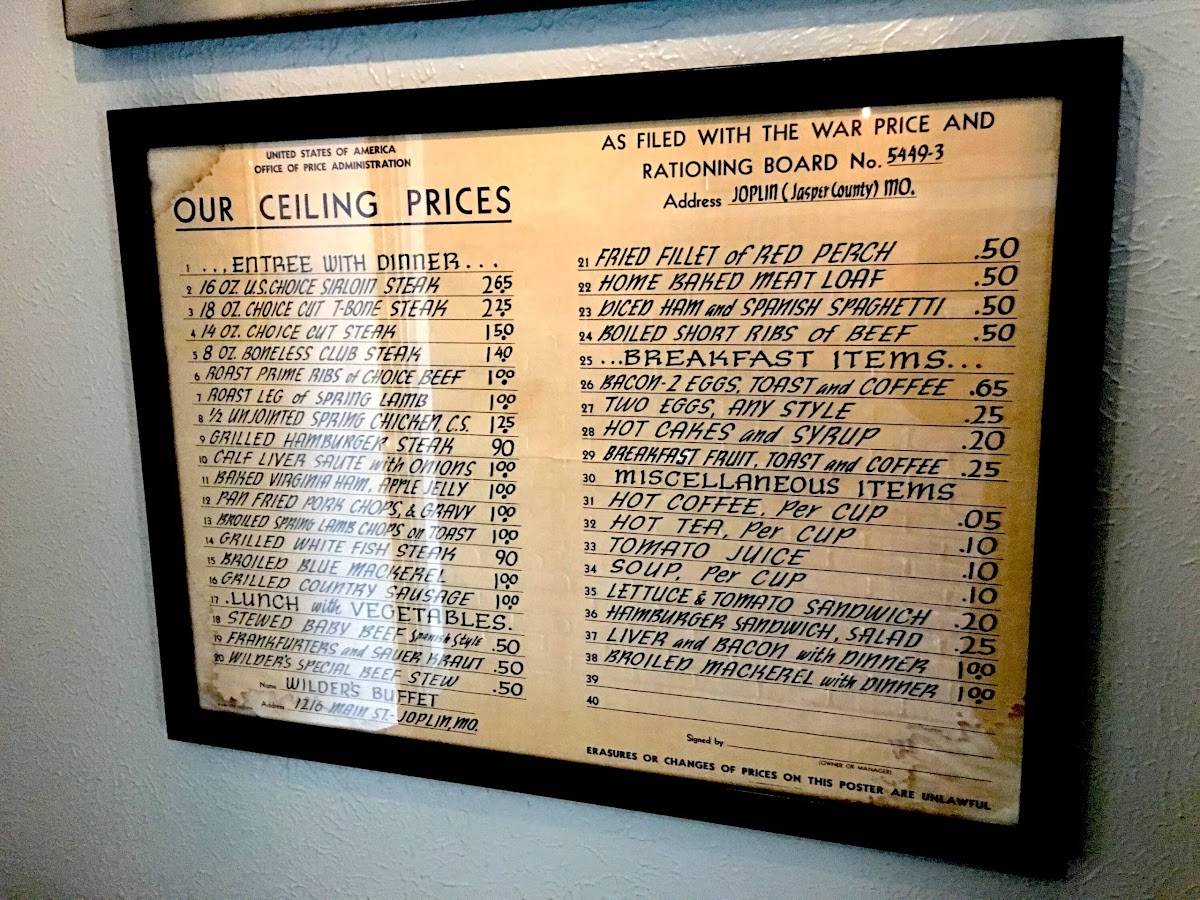 UNITED STATES OF AMERICA
OFFICE OF PRICE ADMINISTRATION
OUR CEILING PRICES
1 ...ENTREE WITH DINNER...
2 16 OZ. U.S. CHOICE SIRLOIN STEAK 2 65
3 18 OZ. CHOICE CUT T-BONE STEAK 2 25
4 14 OZ. CHOICE CUT STEAK 1 50
5 8 OZ. BONELESS CLUB STEAK 1 40
6 ROAST PRIME RIBS of CHOICE BEEF 1 00
7 ROAST LEG of SPRING LAMB 1 00
8 1/2 UNJOINTED SPRING CHICKEN, C.S. 1 25
9 GRILLED HAMBURGER STEAK 90
10 CALF LIVER SAUTE with ONIONS 1 00
11 BAKED VIRGINIA HAM, APPLE JELLY 1 00
12 PAN FRIED PORK CHOPS, & GRAVY 1 00
13 BROILED SPRING LAMB CHOPS on TOAST 1 00
14 GRILLED WHITE FISH STEAK 90
15 BROILED BLUE MACKEREL 1 00
16 GRILLED COUNTRY SAUSAGE 1 00
17 .LUNCH with VEGETABLES.
18 STEWED BABY BEEF Spanish Style .50
19 FRANKFURTERS and SAUER KRAUT .50
20 WILDER'S SPECIAL BEEF STEW .50
Name WILDER'S BUFFET
Address 1216 MAIN ST- JOPLIN, MO.
AS FILED WITH THE WAR PRICE AND
RATIONING BOARD No. 5449-3
Address JOPLIN (Jasper County) MO.
21 FRIED FILLET of RED PERCH .50
22 HOME BAKED MEAT LOAF .50
23 DICED HAM and SPANISH SPAGHETTI .50
24 BOILED SHORT RIBS of BEEF .50
25 ...BREAKFAST ITEMS...
26 BACON-2 EGGS, TOAST and COFFEE .65
27 TWO EGGS, ANY STYLE .25
28 HOT CAKES and SYRUP .20
29 BREAKFAST FRUIT, TOAST and COFFEE .25
30 MISCELLANEOUS ITEMS
31 HOT COFFEE, Per CUP .05
32 HOT TEA, Per CUP .10
33 TOMATO JUICE .10
34 SOUP, Per CUP .10
35 LETTUCE & TOMATO SANDWICH .20
36 HAMBURGER SANDWICH, SALAD .25
37 LIVER and BACON with DINNER 1 00
38 BROILED MACKEREL with DINNER 1 00
39
40
Signed by
(OWNER OR MANAGER)
ERASURES OR CHANGES OF PRICES ON THIS POSTER ARE UNLAWFUL